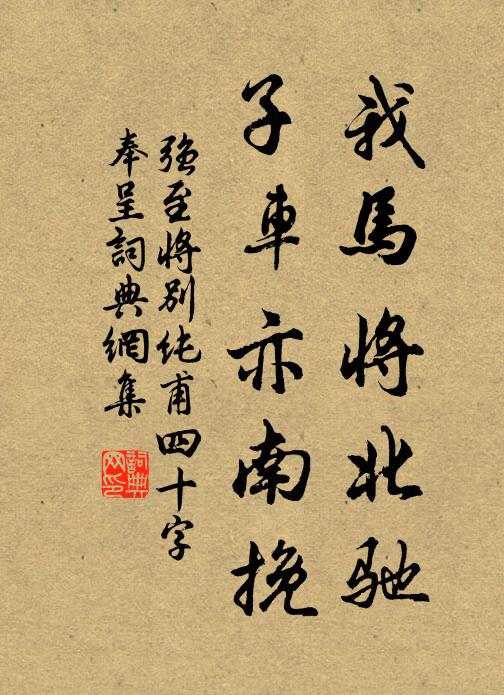 我馬將北馳
子車亦南挽
強至將別純甫四十字
奉呈詞典網集
詞典
网印